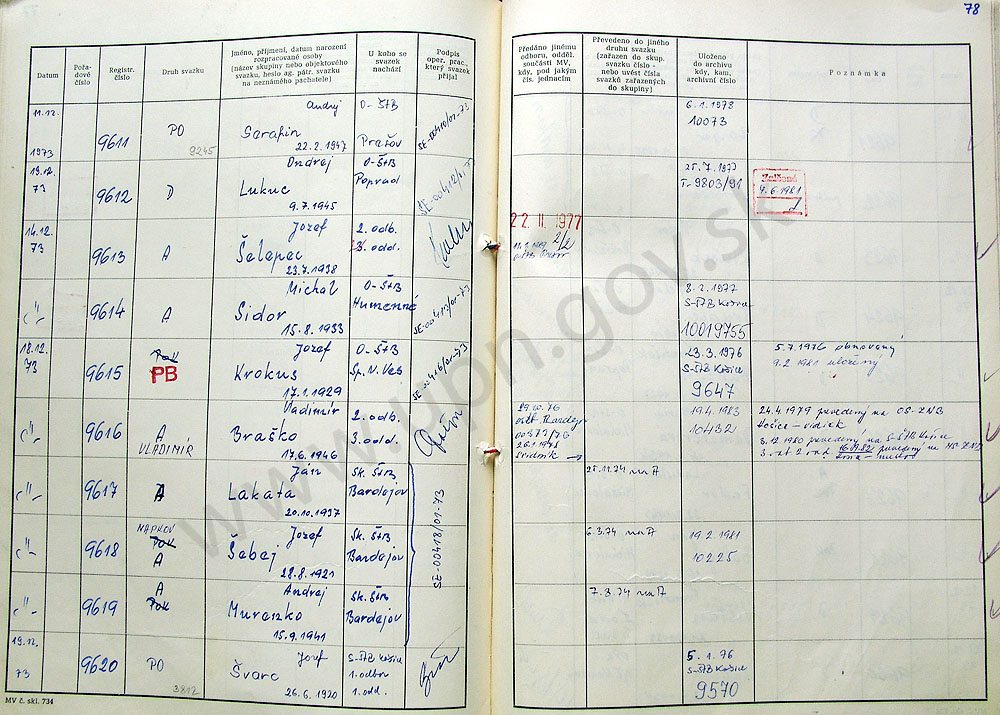 78
Datum
Pořadové číslo
Registr. číslo
Druh svazku
Jméno, příjmení, datum narození rozpracované osoby (název skupiny nebo objektového svazku, heslo ag. pátr. svazku na neznámého pachatele)
U koho se svazek nachází
Podpis oper. prac., který svazek přijal
Předáno jinému odboru, odděl. součásti MV, kdy, pod jakým čís. jednacím
Převedeno do jiného druhu svazku (zařazen do skup. svazku číslo - nebo uvést čísla svazků zařazených do skupiny)
Uloženo do archivu kdy, kam, archivní číslo
Poznámka
11.12. 1973 9611 PO 9245 Andrej Serafin 22.2.1947 O-ŠtB Prešov SE-00410/01-73 6.1.1978 10073
19.12. 73 9612 D Ondrej Lukuc 9.7.1945 O-ŠtB Poprad 25.7.1977 T-9803/91 Zničené 9.6.1981
14.12. 73 9613 A Jozef Šelepec 23.7.1938 2. odb. 3. odd. 22.11.1977
-"- 9614 A Michal Sidor 15.8.1933 O-ŠtB Humenné 8.2.1977 S-ŠtB Košice 10019755
18.12. 73 9615 PB Jozef Krokus 17.1.1929 O-ŠtB Sp. N. Ves SE-00416/01-73 23.3.1976 S-ŠtB Košice 9647 5.7.1976 obnovený
9.2.1981 uložený
-"- 9616 A VLADIMÍR Vladimír Braško 17.6.1946 2. odb. 3. odd. 29.10.76 Svidník 19.4.1983 10432 24.4.1979 prevedený na OS-ZNB
Košice-vidiek
3.12.1980 prevedený na S-ŠtB Košice
-"- 9617 A Ján Lakata 20.10.1937 Sk. ŠtB Bardejov SE-00418/01-73 25.11.74 na A
-"- 9618 A Jozef Šebej 28.8.1921 Sk. ŠtB Bardejov 6.3.74 na A 19.2.1981 10225
-"- 9619 A Andrej Muranko 15.9.1941 Sk. ŠtB Bardejov 7.3.74 na A
19.12. 73 9620 PO 3812 Jozef Švarc 26.6.1920 S-ŠtB Košice 1. odbor 1. odd. 5.1.76 S-ŠtB Košice 9570
MV č. skl. 734
www.upn.gov.sk